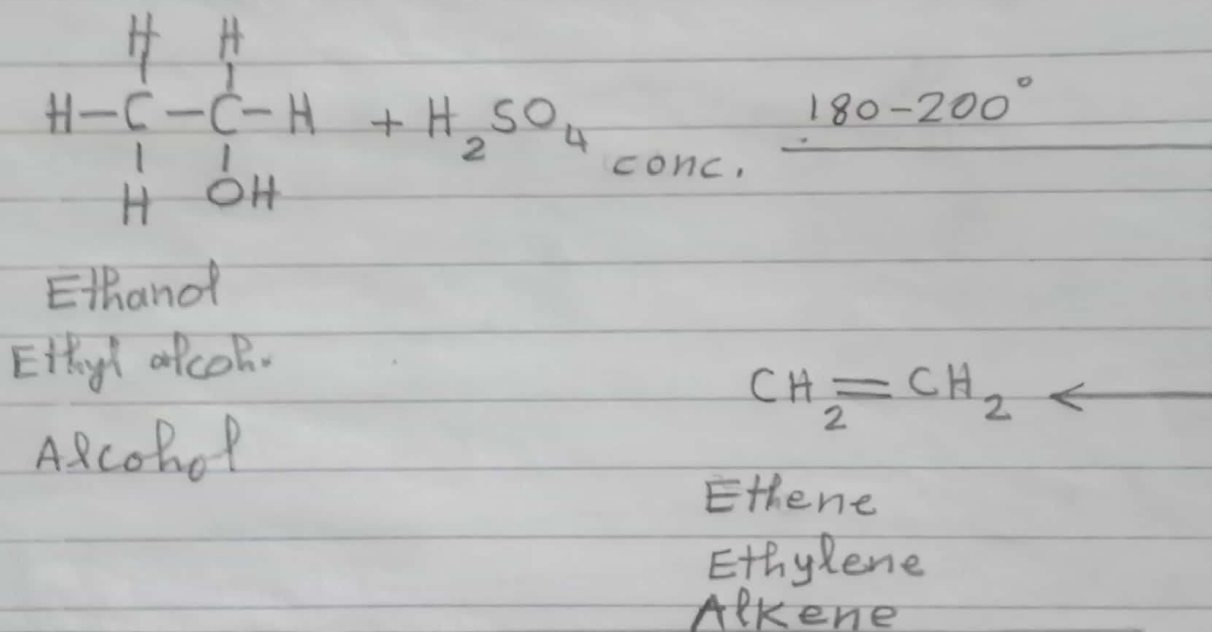 H H
H-C-C-H + H₂SO₄ conc. 180-200°
H OH
Ethanol
Ethyl alcoh.
Alcohol
CH₂=CH₂ ←
Ethene
Ethylene
Alkene